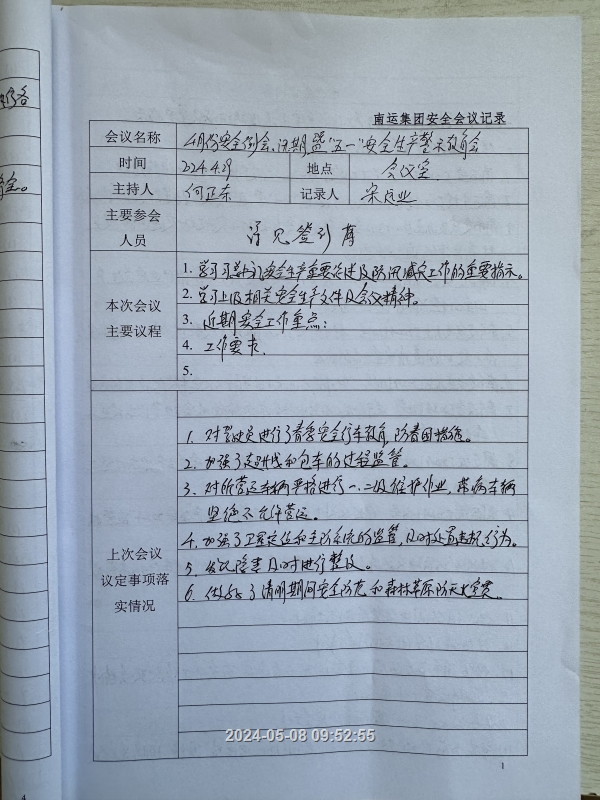 南运集团安全会议记录
会议名称 4月份安全例会、汛期暨"五一"安全生产警示教育会
时间 2024.4.29 地点 会议室
主持人 何正东 记录人
主要参会
人员 详见签到簿
本次会议
主要议程
1. 学习习总书记安全生产重要论述及防汛减灾工作的重要指示。
2. 学习上级相关安全生产文件及会议精神。
3. 近期安全工作重点;
4. 工作要求.
5.
上次会议
议定事项落
实情况
1. 对驾驶员进行了春季安全行车教育,防春困措施。
2. 加强了支班线和包车的过程监管。
3. 对所营运车辆严格进行一、二级维护作业,带病车辆
坚绝不允许营运。
4. 加强了卫星定位和主防系统的监管,及时处置违规行为。
5. 发现隐患及时进行整改。
6. 做好了清明期间安全防范和森林草原防灭火宣贯。
2024-05-08 09:52:55
1
4